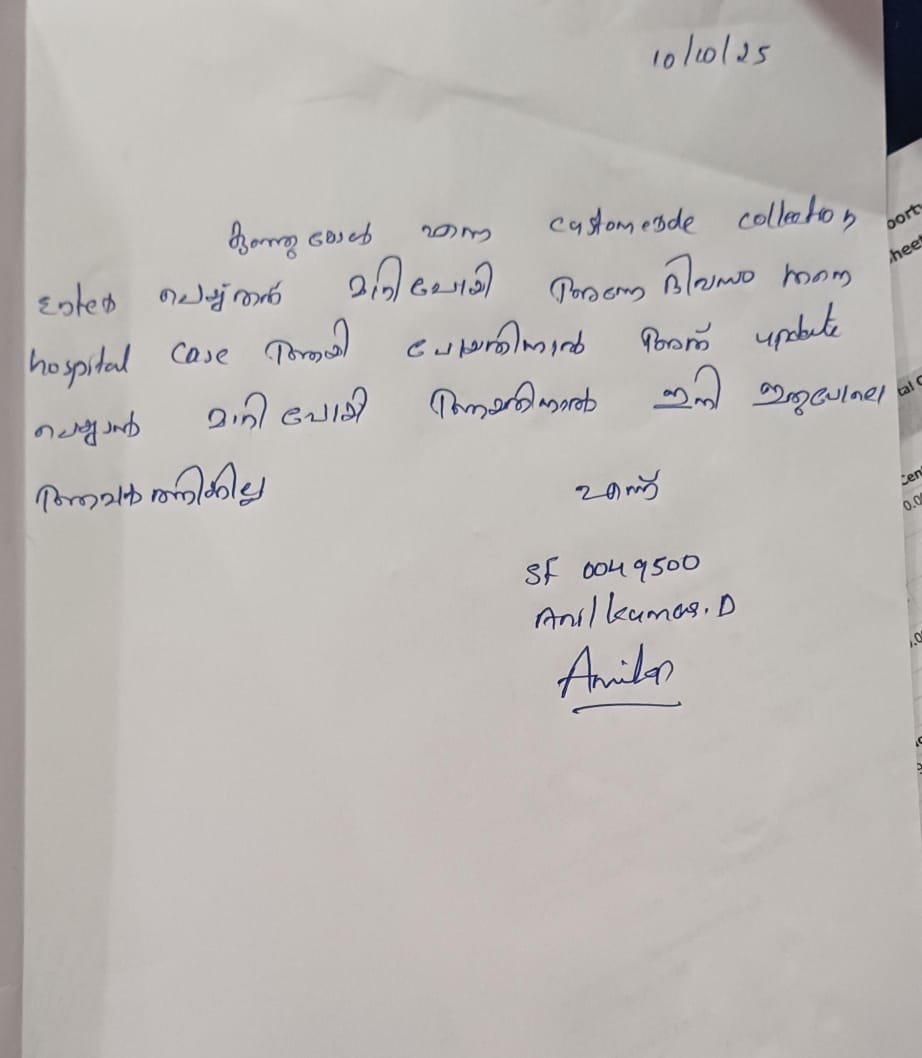 10/10/25
കുഞ്ഞുമോൾ എന്ന customerde collection
Enter ചെയ്യാൻ മറന്നുപോയി അന്നേ ദിവസം ഞാൻ
hospital case ആയി പോയതിനാൽ അത് update
ചെയ്യാൻ മറന്നു പോയി ആയതിനാൽ ഇനി ഇതുപോലെ
ആവർത്തിക്കില്ല
എന്ന്
SF 0049500
Anil kumar. D
Anilkr
oort
heet
tal C
Cen
0.0